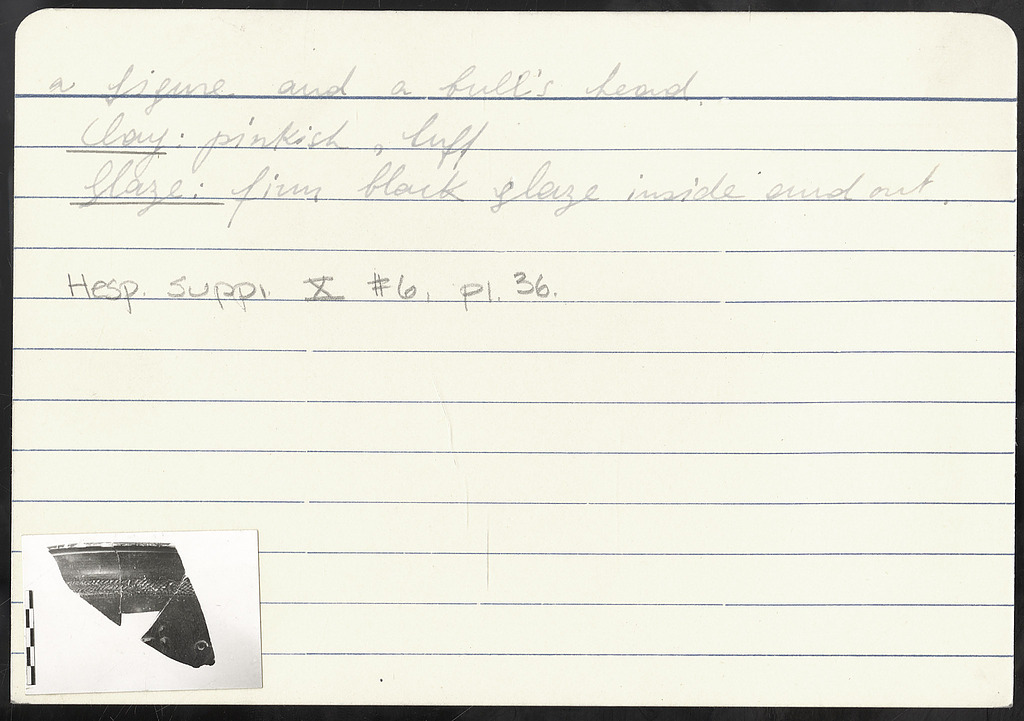 a figure and a bull's head.
Clay: pinkish, buff
Glaze: firm black glaze inside and out.
Hesp. Suppl. X #6, pl. 36.